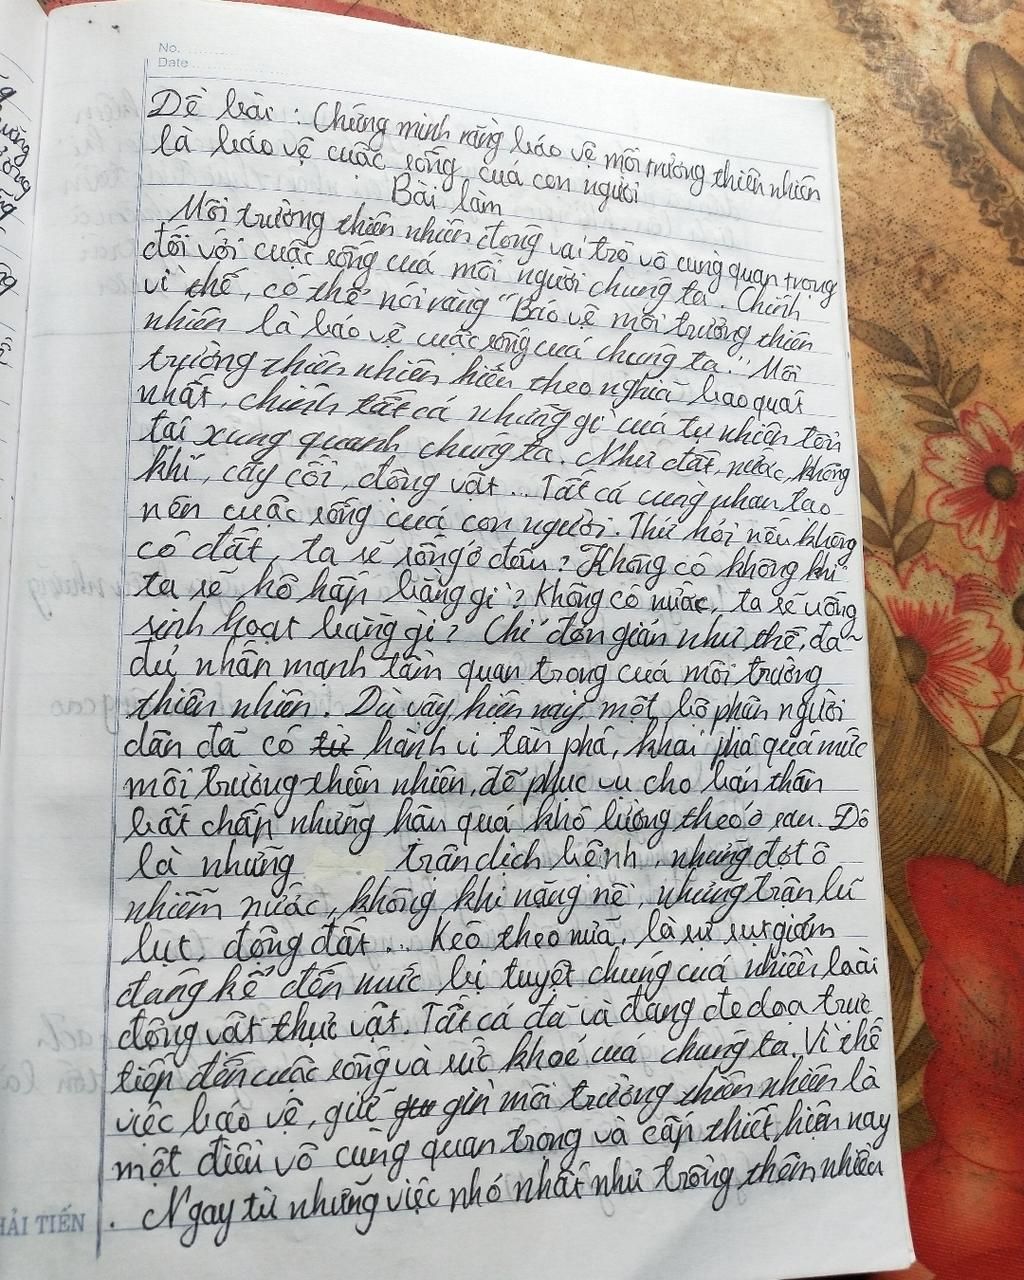 No.
Date
Đề bài : Chứng minh rằng bảo vệ môi trường thiên nhiên
là bảo vệ cuộc sống của con người
Bài làm
Môi trường thiên nhiên đóng vai trò vô cùng quan trọng
đối với cuộc sống của mỗi người chúng ta. Chính
vì thế, có thể nói rằng "Bảo vệ môi trường thiên
nhiên là bảo vệ cuộc sống của chúng ta." Môi
trường thiên nhiên hiểu theo nghĩa bao quát
nhất, chính tất cả những gì của tự nhiên tồn
tại xung quanh chúng ta. Như đất, nước, không
khí, cây cối, động vật... Tất cả cùng nhau tạo
nên cuộc sống của con người. Thử hỏi nếu không
có đất, ta sẽ sống ở đâu? Không có không khí
ta sẽ hô hấp bằng gì? Không có nước, ta sẽ uống
sinh hoạt bằng gì? Chỉ đơn giản như thế, đã
đủ nhấn mạnh tầm quan trọng của môi trường
thiên nhiên. Dù vậy, hiện nay, một bộ phận người
dân đã có từ hành vi tàn phá, khai phá quá mức
môi trường thiên nhiên, để phục vụ cho bản thân
bất chấp những hậu quả khó lường theo ở sau. Đó
là những trận dịch bệnh, những đợt ô
nhiễm nước, không khí nặng nề, những trận lũ
lụt, động đất... Kéo theo nữa, là sự sụt giảm
đáng kể đến mức bị tuyệt chủng của nhiều loài
động vật thực vật. Tất cả đã và đang đe dọa trực
tiếp đến cuộc sống và sức khoẻ của chúng ta. Vì thế
việc bảo vệ, giữ gìn môi trường thiên nhiên là
một điều vô cùng quan trọng và cấp thiết hiện nay
. Ngay từ những việc nhỏ nhất như trồng thêm nhiều
HẢI TIẾN